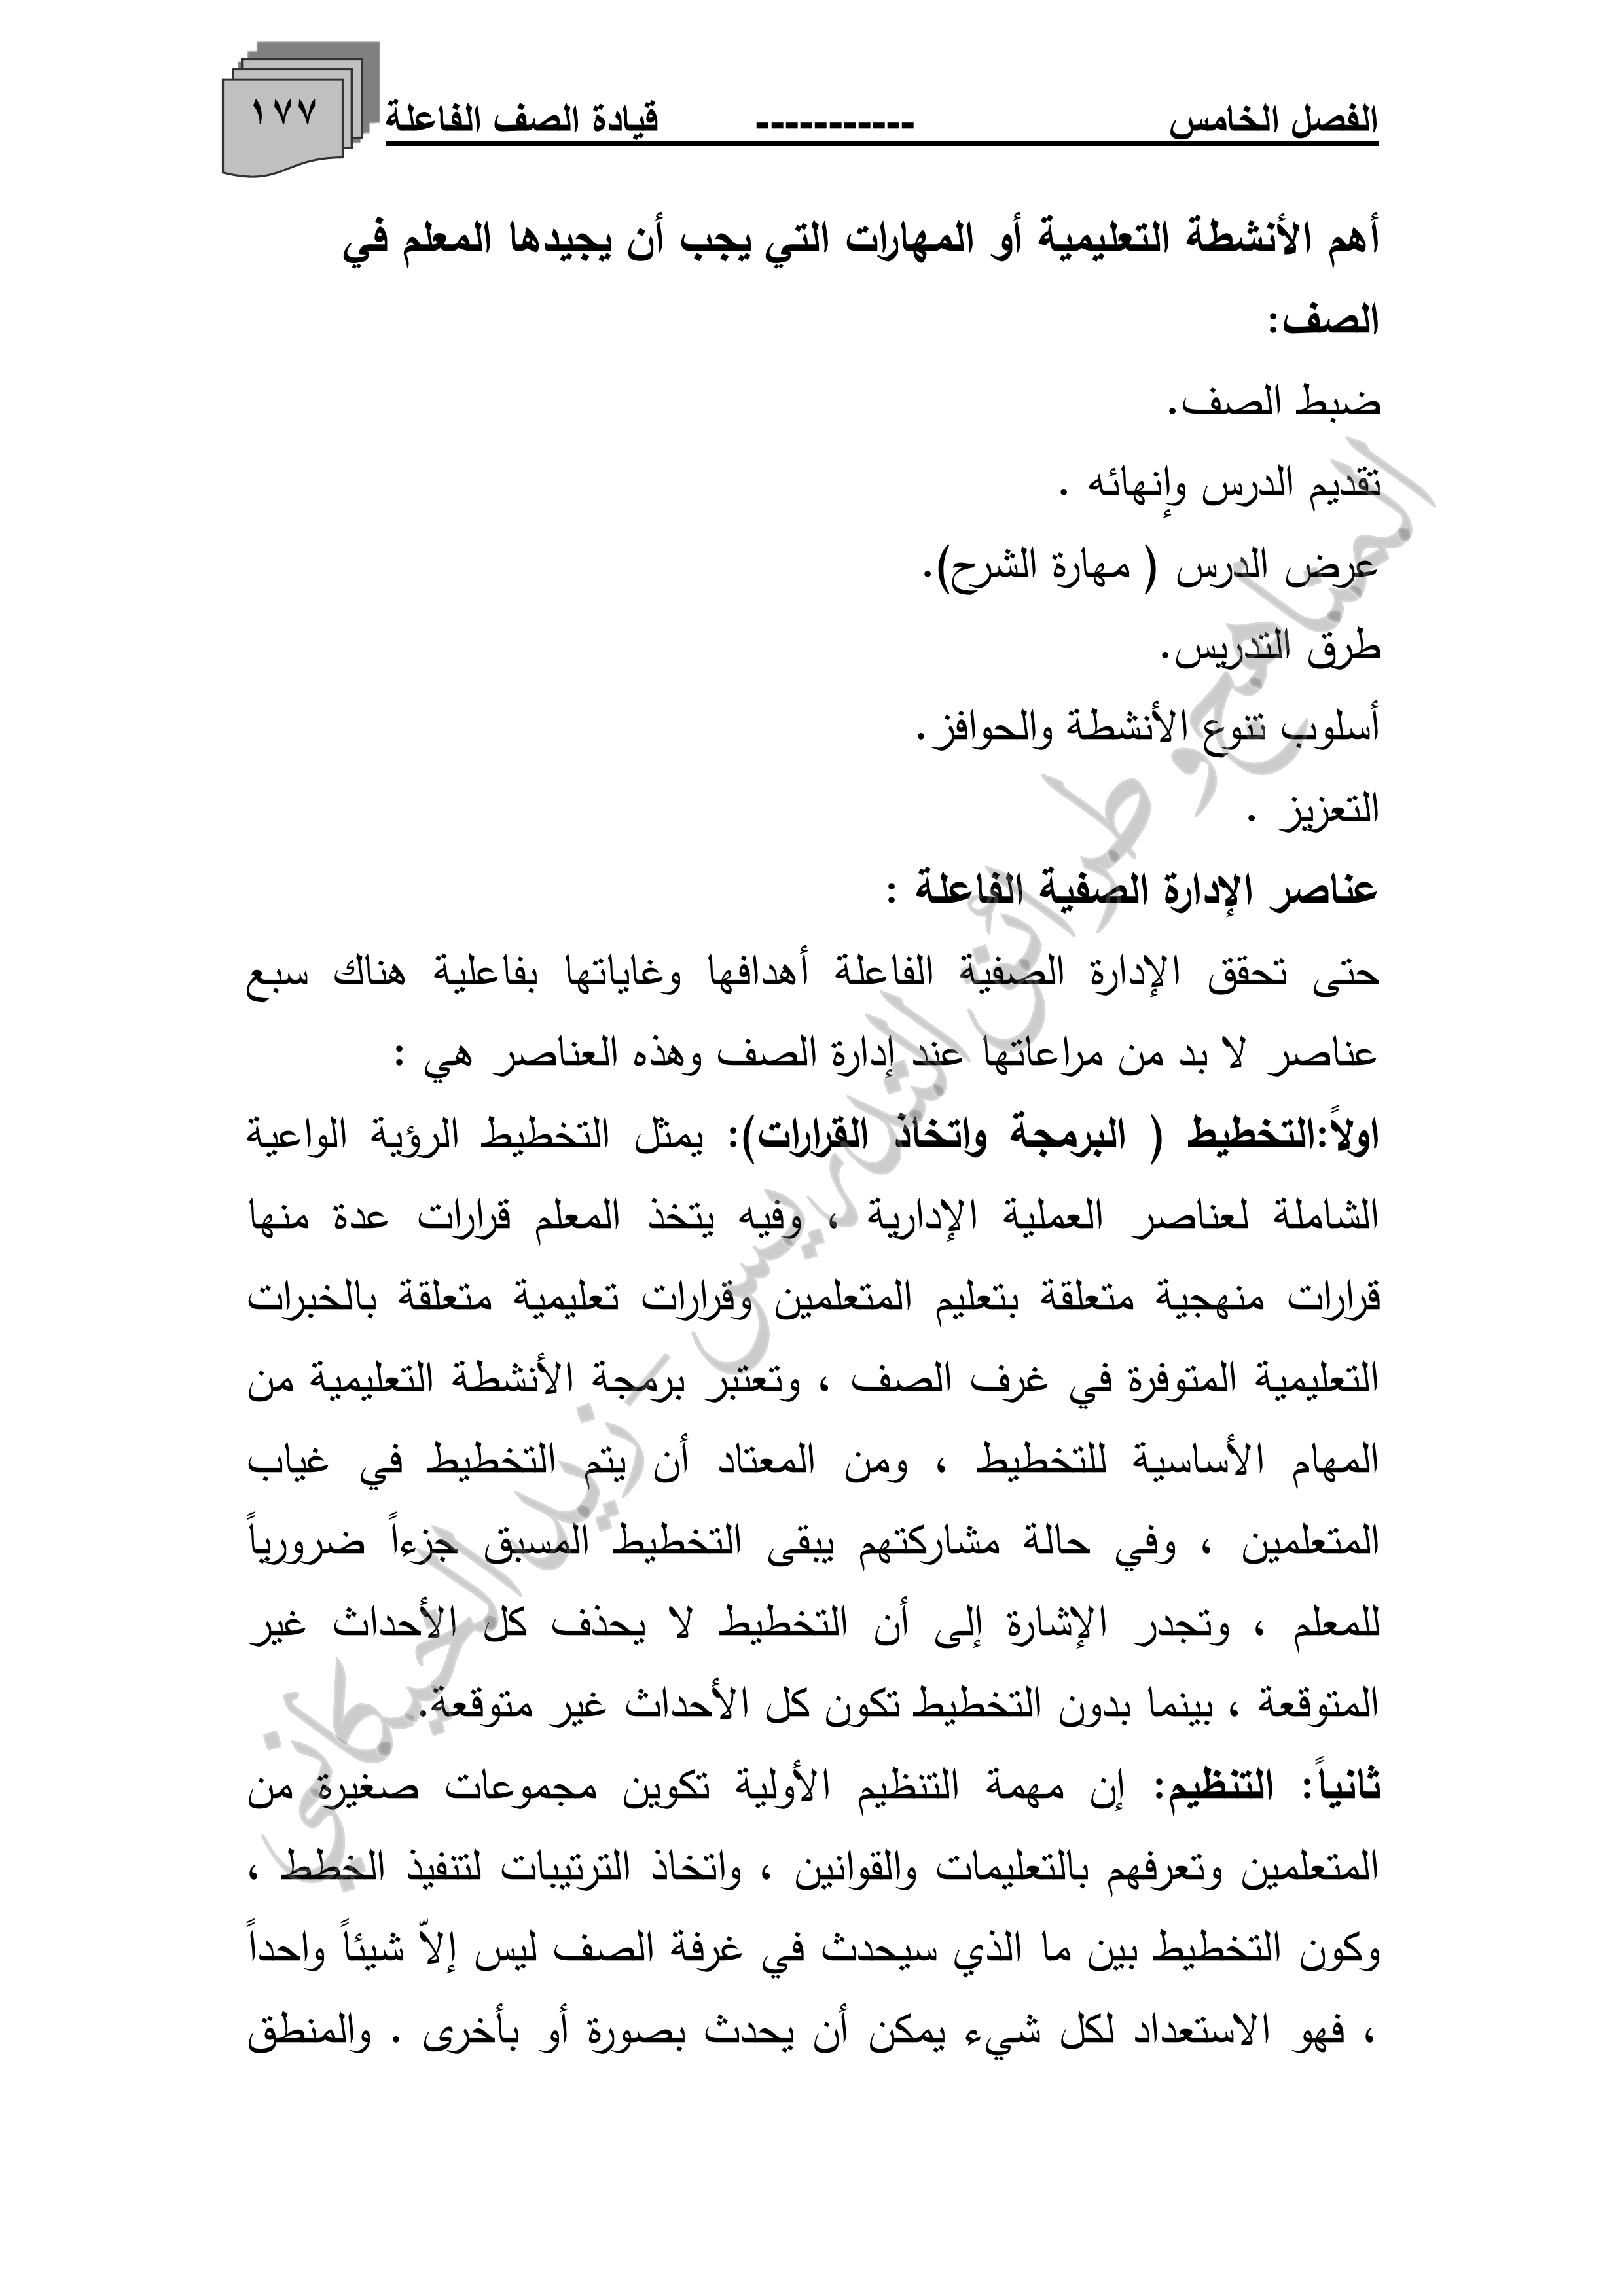 الفصل الخامس ----------- قيادة الصف الفاعلة ١٧٧
أهم الأنشطة التعليمية أو المهارات التي يجب أن يجيدها المعلم في
الصف:
ضبط الصف.
تقديم الدرس وإنهائه .
عرض الدرس ( مهارة الشرح).
طرق التدريس.
أسلوب تنوع الأنشطة والحوافز.
التعزيز .
عناصر الإدارة الصفية الفاعلة :
حتى تحقق الإدارة الصفية الفاعلة أهدافها وغاياتها بفاعلية هناك سبع
عناصر لا بد من مراعاتها عند إدارة الصف وهذه العناصر هي :
اولاً:التخطيط ( البرمجة واتخاذ القرارات): يمثل التخطيط الرؤية الواعية
الشاملة لعناصر العملية الإدارية ، وفيه يتخذ المعلم قرارات عدة منها
قرارات منهجية متعلقة بتعليم المتعلمين وقرارات تعليمية متعلقة بالخبرات
التعليمية المتوفرة في غرف الصف ، وتعتبر برمجة الأنشطة التعليمية من
المهام الأساسية للتخطيط ، ومن المعتاد أن يتم التخطيط في غياب
المتعلمين ، وفي حالة مشاركتهم يبقى التخطيط المسبق جزءاً ضرورياً
للمعلم ، وتجدر الإشارة إلى أن التخطيط لا يحذف كل الأحداث غير
المتوقعة ، بينما بدون التخطيط تكون كل الأحداث غير متوقعة.
ثانياً: التنظيم: إن مهمة التنظيم الأولية تكوين مجموعات صغيرة من
المتعلمين وتعرفهم بالتعليمات والقوانين ، واتخاذ الترتيبات لتنفيذ الخطط ،
وكون التخطيط بين ما الذي سيحدث في غرفة الصف ليس إلاّ شيئاً واحداً
، فهو الاستعداد لكل شيء يمكن أن يحدث بصورة أو بأخرى . والمنطق
المناهج و طرائق التدريس - زيد الحيكاني